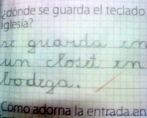 ¿dónde se guarda el teclado
iglesia?
se guarda en
un closet en
bodega.
Como adorna la entrada en